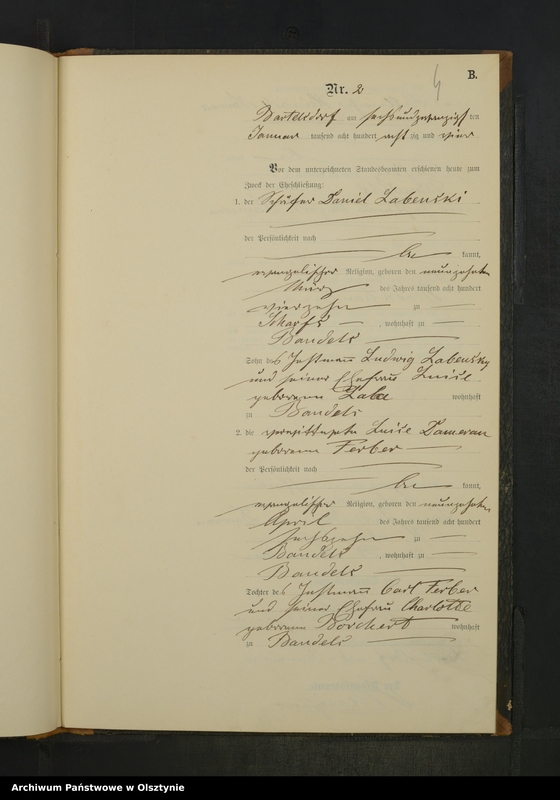 4
B.
Nr. 2
Bartelsdorf am sechsundzwanzigsten
Januar tausend acht hundert achtzig und vier
Vor dem unterzeichneten Standesbeamten erschienen heute zum
Zweck der Eheschließung:
1. der Schäfer Daniel Labenski
der Persönlichkeit nach
be kannt,
evangelischer Religion, geboren den neunzehnten
März des Jahres tausend acht hundert
vierzehn zu
Scharfs, wohnhaft zu
Bandels
Sohn des Instmann Ludwig Labensky
und seiner Ehefrau Luise
geborenen Laba wohnhaft
zu Bandels
2. die verwittwete Luise Damerau
geborene Ferber
der Persönlichkeit nach
be kannt,
evangelischer Religion, geboren den neunzehnten
April des Jahres tausend acht hundert
sechszehn zu
Bandels, wohnhaft zu
Bandels
Tochter des Instmann Carl Ferber
und seiner Ehefrau Charlotte
geborenen Borchert wohnhaft
zu Bandels
Archiwum Państwowe w Olsztynie